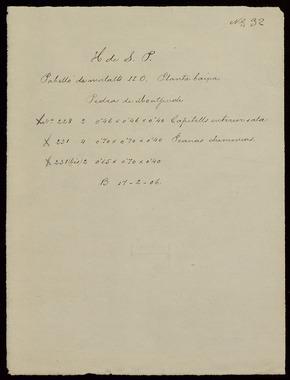 Nº 32
H de S. P.
Pabelló de malalts 11 O. Planta baixa
Pedra de Montjuich
X Nº 228 2 0'46 x 0'46 x 0'40 Capitells interior sala
X 231 4 0'70 x 0'70 x 0'40 Granas
X 231 bis 2 0'65 x 0'70 x 0'40
B 17-2-06.